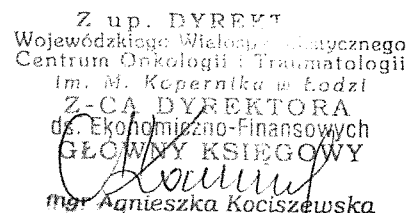 Z up. DYREKT
Wojewódzkiego
Centrum Onkologii i Traumatologii
im. M. Kopernika w Łodzi
Z-CA DYREKTORA
ds. Ekonomiczno-Finansowych
GŁÓWNY KSIĘGOWY
mgr Agnieszka Kociszewska